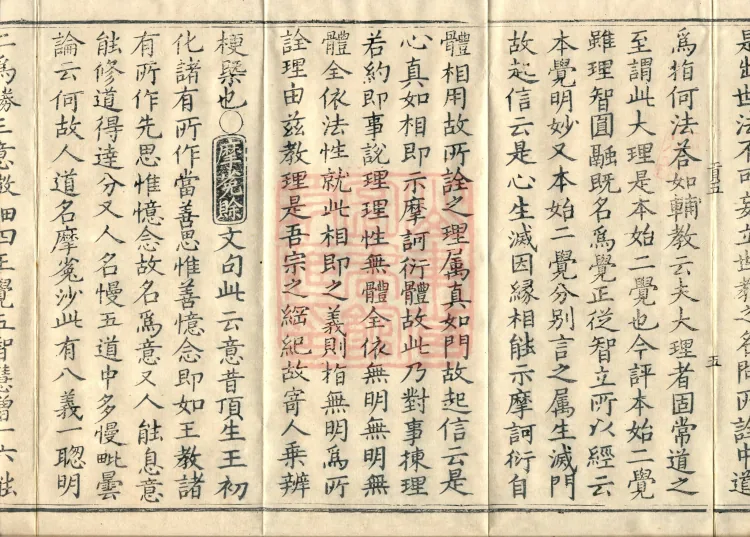 是出世法不可哀立世教之名問所詮中道
爲指何法荅如輔教云夫大理者固常道之
至謂此大理是本始二覺也今評本始二覺
雖理智圓融既名爲覺正從智立所以經云
本覺明妙又本始二覺分別言之属生滅門
故起信云是心生滅因縁相能示摩訶衍自
體相用故所詮之理属真如門故起信云是
心真如相即示摩訶衍體故此乃對事揀理
若約即事説理理性無體全依無明無明無
體全依法性就此相即之義則指無明爲所
詮理由兹教理是吾宗之綱紀故寄人乗辨
梗槩也〇摩㝹賒文句此云意昔頂生王初
化諸有所作當善思惟善憶念即如王教諸
有所作先思惟憶念故名爲意又人能息意
能修道得達分又人名慢五道中多慢毗曇
論云何故人道名摩㝹沙此有八義一聰明
二爲勝三意微細四正覺五智慧增上六能
貢五
五